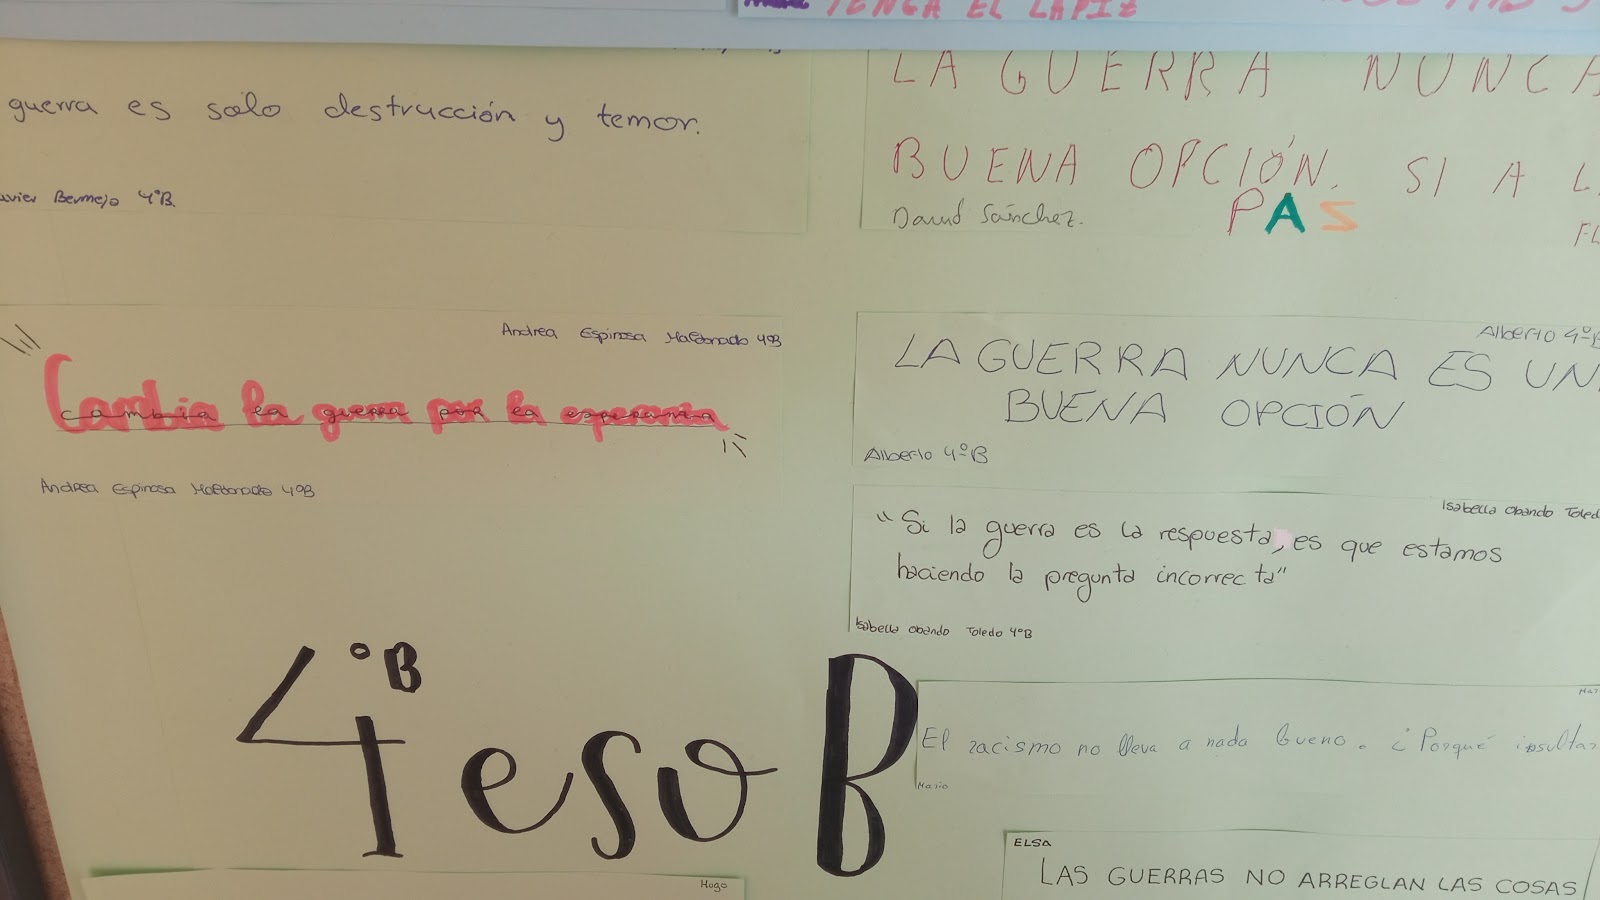 TENGA EL LÁPIZ
guerra es solo destrucción y temor.
Javier Bermejo 4ºB.
LA GUERRA NUNCA
BUENA OPCIÓN. SI A L
PAS
David Sánchez.
Andrea Espinosa Maldonado 4ºB
Cambia la guerra por la esperanza
Andrea Espinosa Maldonado 4ºB
Alberto 4ºB
LA GUERRA NUNCA ES UN
BUENA OPCIÓN
Alberto 4ºB
Isabella Obando Toled
"Si la guerra es la respuesta, es que estamos
haciendo la pregunta incorrecta"
Isabella Obando Toledo 4ºB
4ºB eso B
El racismo no lleva a nada bueno. ¿Porqué insultar
Mario
ELSA
LAS GUERRAS NO ARREGLAN LAS COSAS
Hugo